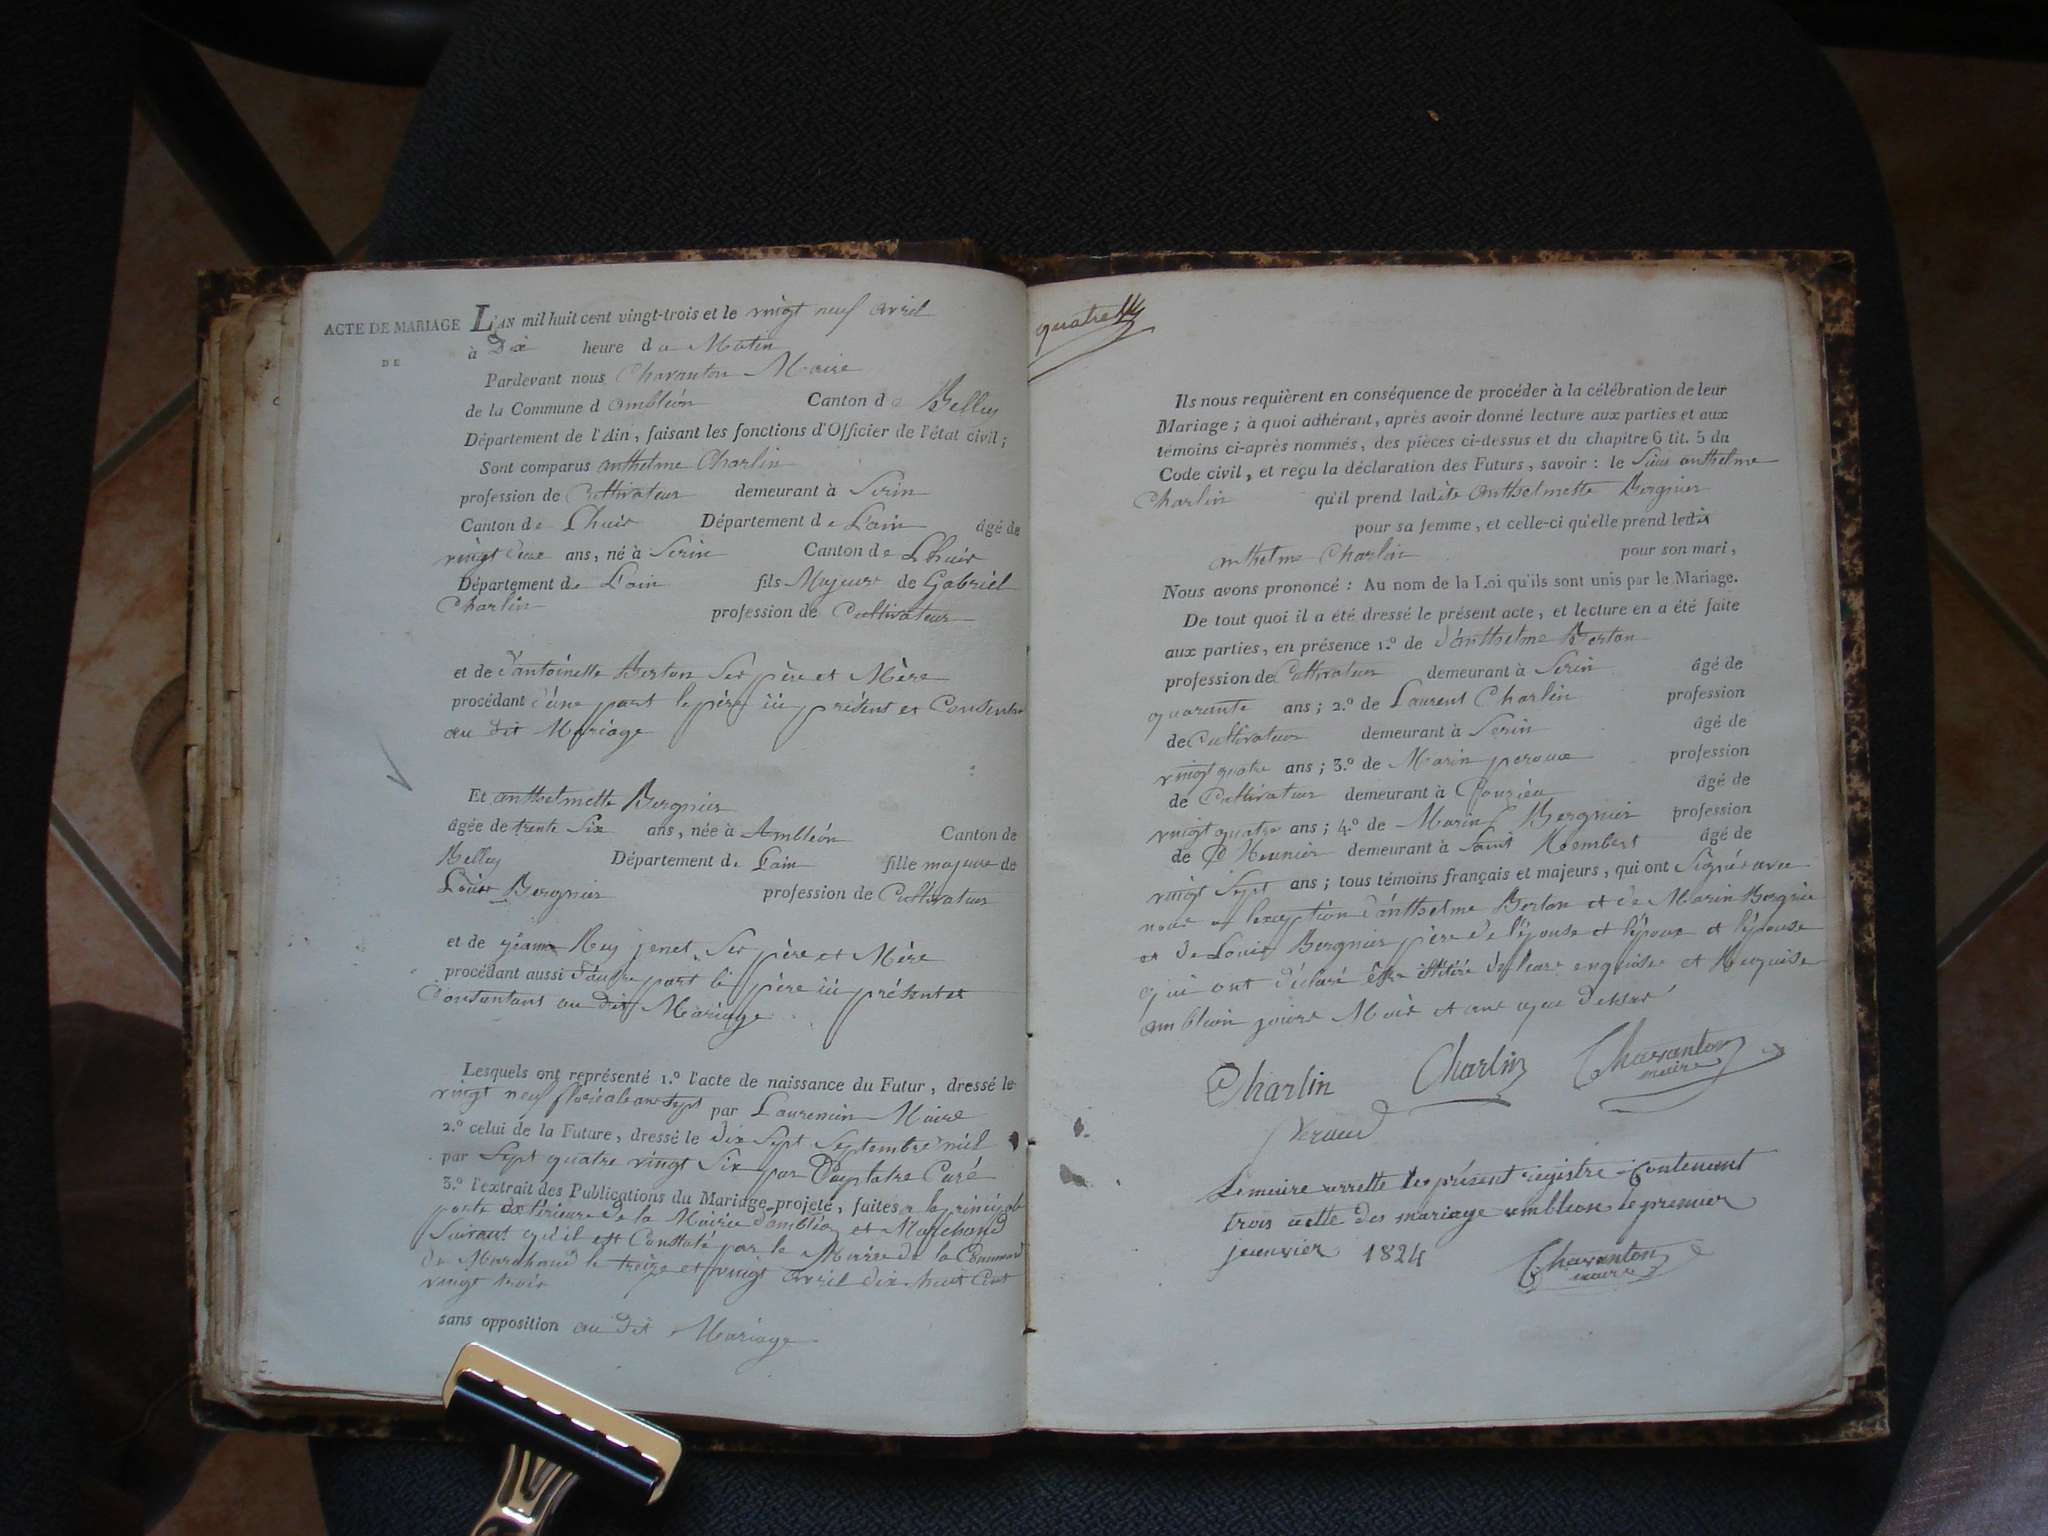 ACTE DE MARIAGE
DE
L'AN mil huit cent vingt-trois et le vingt neuf avril
à Dix heure du Matin
Pardevant nous Charanton Maire
de la Commune d'ambléon Canton de Belley
Département de l'Ain, faisant les fonctions d'Officier de l'état civil;
Sont comparus anthelme Charlin
profession de Cultivateur demeurant à Serin
Canton de Lhuis Département de L'ain âgé de
vingt deux ans, né à Serin Canton de Lhuis
Département de L'ain fils Majeur de Gabriel
Charlin profession de Cultivateur
et de d'antoinette Berton Ses père et Mère
procédant d'une part le père ici présent et Consentant
au dit Mariage
Et anthelmette Bergnier
âgée de trente Six ans, née à Ambléon Canton de
Belley Département de L'ain fille majeure de
Louis Bergnier profession de Cultivateur
et de jeanne Rey Ses père et Mère
procédant aussi d'autre part le père ici présent et
Consentant au dit Mariage
Lesquels ont représenté 1.º l'acte de naissance du Futur, dressé le
vingt neuf floréal an Sept par Laurencin Maire
2.º celui de la Future, dressé le dix Sept Septembre mil
par Sept quatre vingt Six par Curé
3.º l'extrait des Publications du Mariage projeté, faites a la principale
porte extérieure de la Mairie d'ambléon et Marchand
Suivant qu'il est Constaté par le Maire de la Commune
de Marchand le treize et vingt avril dix-huit Cent
vingt trois
sans opposition au dit Mariage
quatre
Ils nous requièrent en conséquence de procéder à la célébration de leur
Mariage; à quoi adhérant, après avoir donné lecture aux parties et aux
témoins ci-après nommés, des pièces ci-dessus et du chapitre 6 tit. 5 du
Code civil, et reçu la déclaration des Futurs, savoir: le Sieur anthelme
Charlin qu'il prend ladite anthelmette Bergnier
pour sa femme, et celle-ci qu'elle prend ledit
anthelme Charlin pour son mari,
Nous avons prononcé: Au nom de la Loi qu'ils sont unis par le Mariage.
De tout quoi il a été dressé le présent acte, et lecture en a été faite
aux parties, en présence 1.º de d'anthelme Berton
profession de Cultivateur demeurant à Serin âgé de
quarante ans; 2.º de Laurent Charlin profession
de Cultivateur demeurant à Serin âgé de
vingt quatre ans; 3.º de Marin peroux profession
de Cultivateur demeurant à âgé de
vingt quatre ans; 4.º de Marin Bergnier profession
de Meunier demeurant à Saint âgé de
vingt Sept ans; tous témoins français et majeurs, qui ont Signé avec
nous a l'exception d'anthelme Berton et de Marin Bergnier
et de Louis Bergnier père de l'épouse et l'époux et l'épouse
qui ont déclaré être illitéré de leurs enquise et Requise
ambléon jours Mois et an que dessus
Charlin Charlin Charanton
maire
Peraud
Le maire arrette le présent registre Contenant
trois acttes des mariage ambleon le premier
jeanvier 1824
Charanton
maire